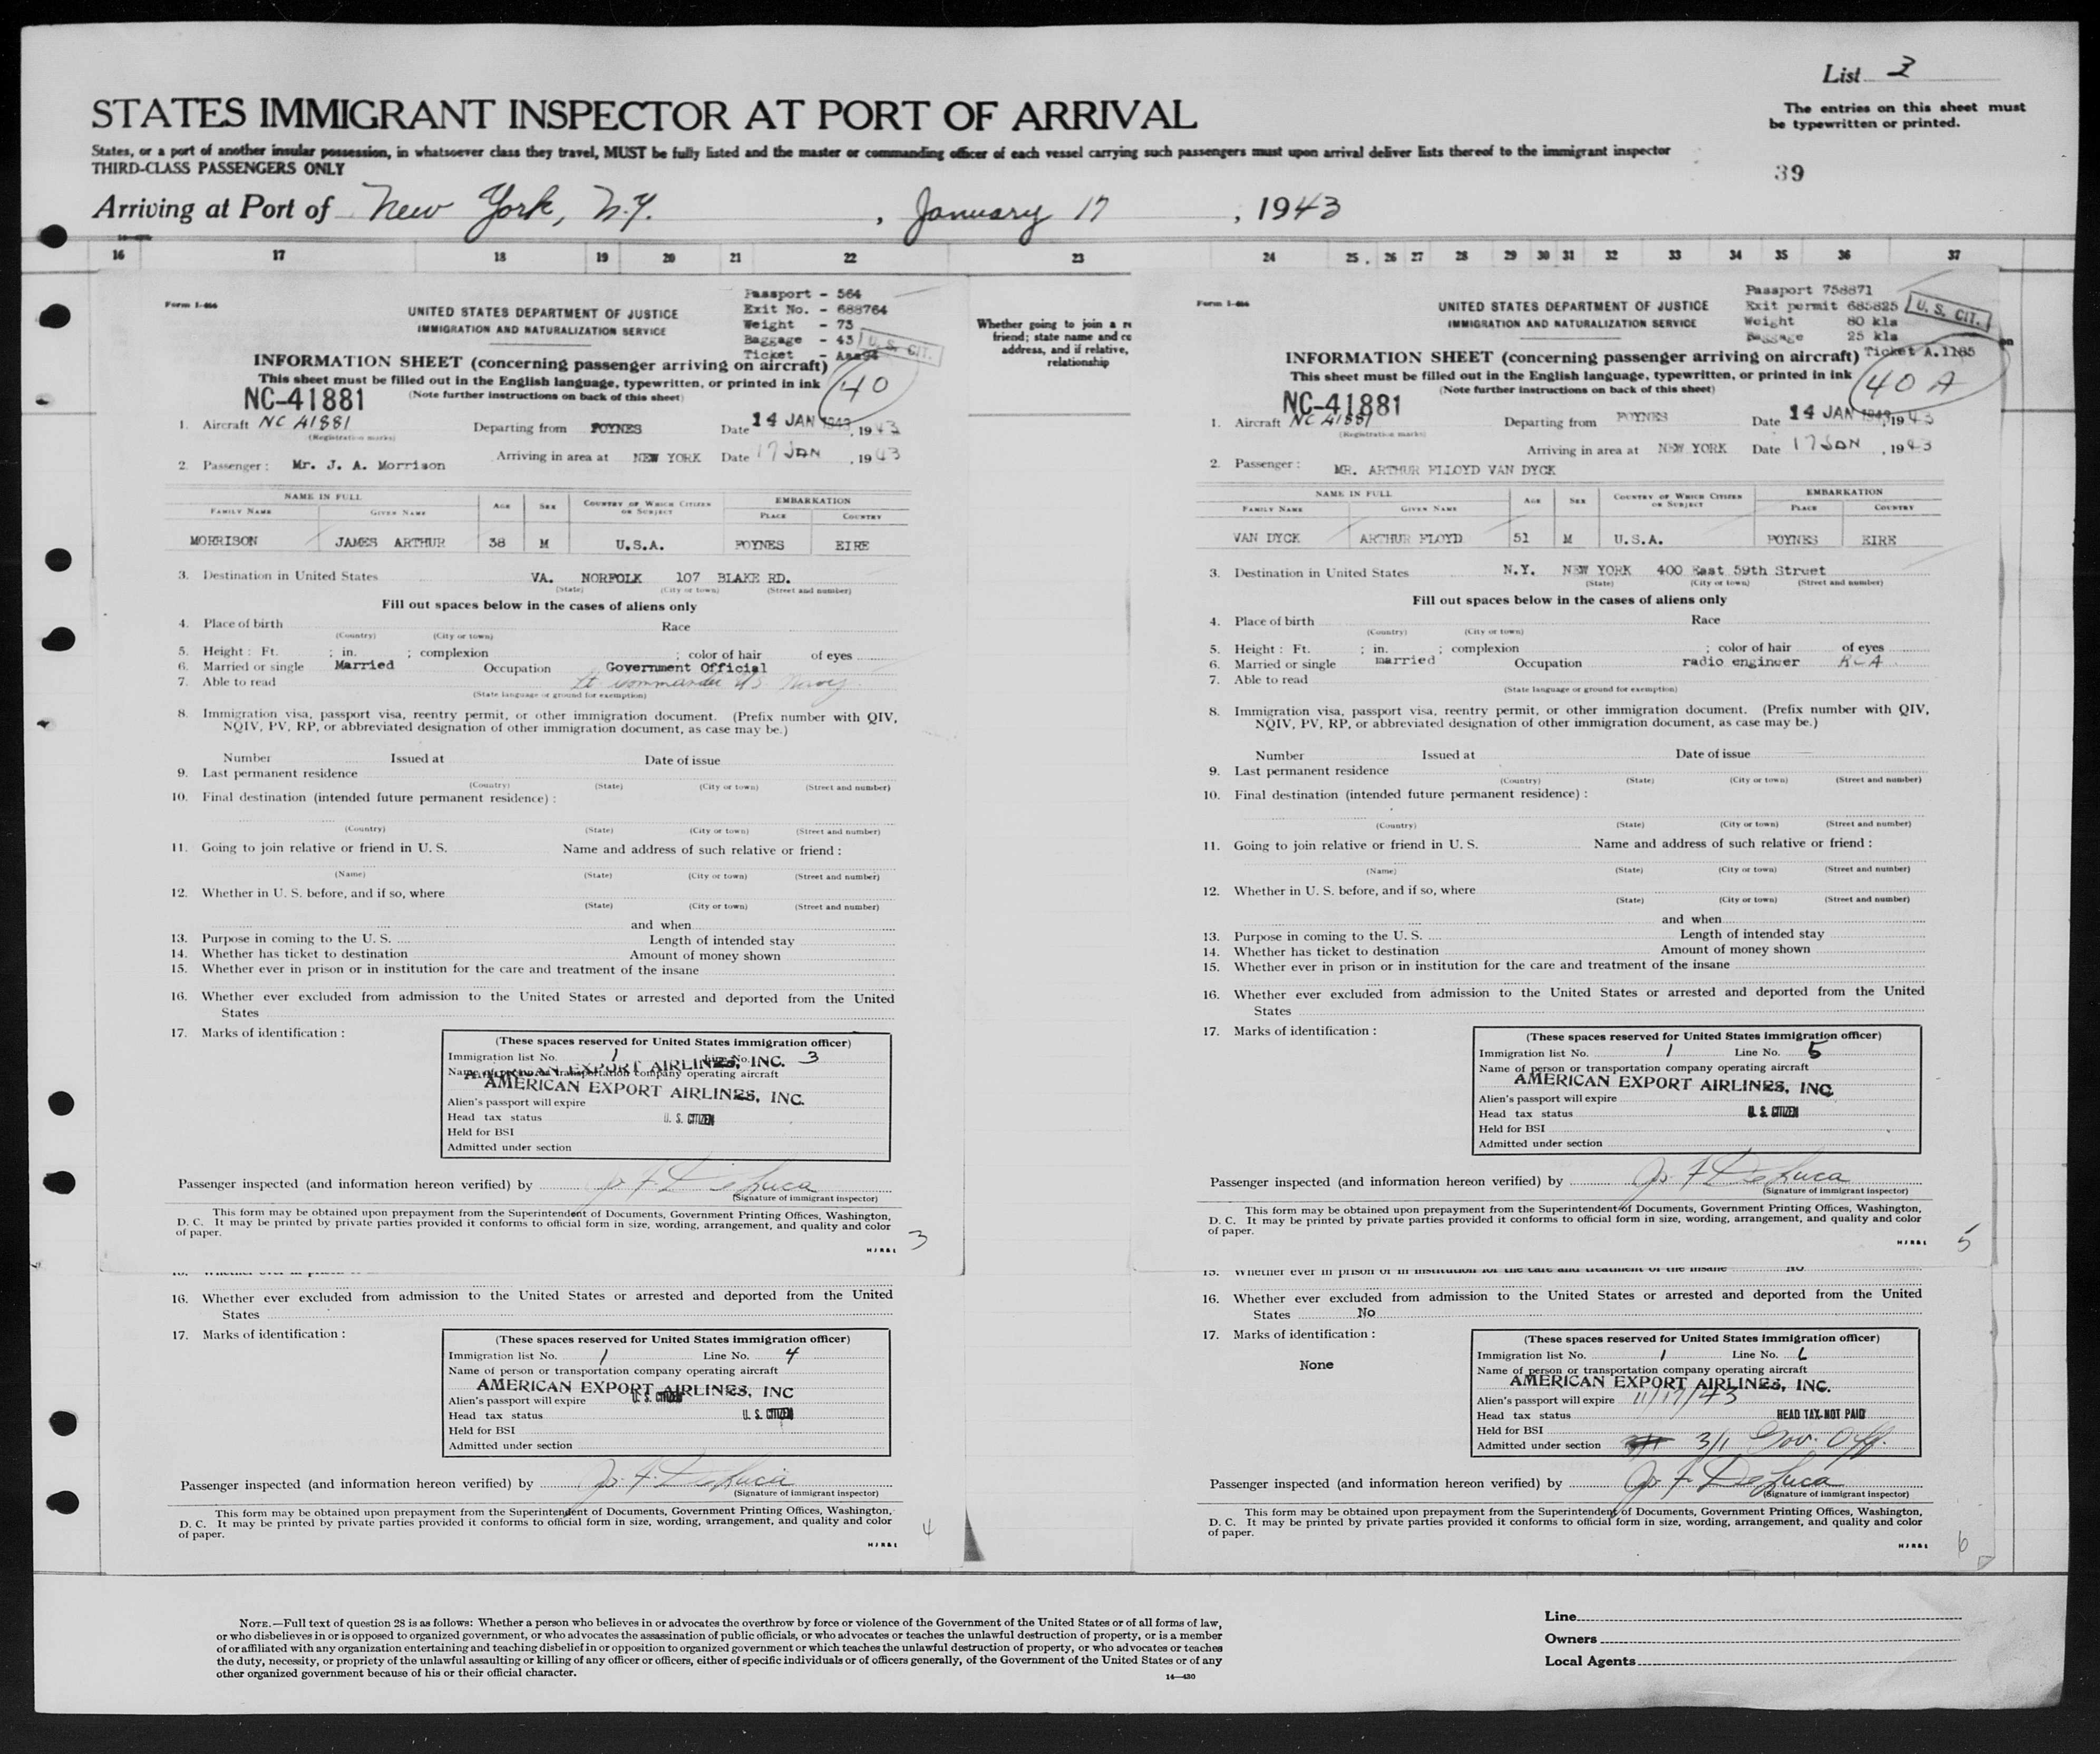 List 3
STATES IMMIGRANT INSPECTOR AT PORT OF ARRIVAL
The entries on this sheet must
be typewritten or printed.
States, or a port of another insular possession, in whatsoever class they travel, MUST be fully listed and the master or commanding officer of each vessel carrying such passengers must upon arrival deliver lists thereof to the immigrant inspector
THIRD-CLASS PASSENGERS ONLY
39
Arriving at Port of New York, N.Y. , January 17 , 1943
16 17 18 19 20 21 22 23 24 25 26 27 28 29 30 31 32 33 34 35 36 37
Form I-466
UNITED STATES DEPARTMENT OF JUSTICE
IMMIGRATION AND NATURALIZATION SERVICE
Passport - 564
Exit No. - 688764
Weight - 73
Baggage - 43
Ticket -
U. S. CIT.
INFORMATION SHEET (concerning passenger arriving on aircraft)
This sheet must be filled out in the English language, typewritten, or printed in ink
40
NC-41881
(Note further instructions on back of this sheet)
1. Aircraft NC 41881 Departing from FOYNES Date 14 JAN 1943, 1943
(Registration marks)
Arriving in area at NEW YORK Date 17 JAN , 1943
2. Passenger: Mr. J. A. Morrison
NAME IN FULL AGE SEX COUNTRY OF WHICH CITIZEN OR SUBJECT EMBARKATION
FAMILY NAME GIVEN NAME PLACE COUNTRY
MORRISON JAMES ARTHUR 38 M U.S.A. FOYNES EIRE
3. Destination in United States VA. NORFOLK 107 BLAKE RD.
(State) (City or town) (Street and number)
Fill out spaces below in the cases of aliens only
4. Place of birth Race
(Country) (City or town)
5. Height: Ft. ; in. ; complexion ; color of hair of eyes
6. Married or single Married Occupation Government Official
7. Able to read Lt Commander US Navy
(State language or ground for exemption)
8. Immigration visa, passport visa, reentry permit, or other immigration document. (Prefix number with QIV,
NQIV, PV, RP, or abbreviated designation of other immigration document, as case may be.)
Number Issued at Date of issue
9. Last permanent residence
(Country) (State) (City or town) (Street and number)
10. Final destination (intended future permanent residence):
(Country) (State) (City or town) (Street and number)
11. Going to join relative or friend in U. S. Name and address of such relative or friend:
(Name) (State) (City or town) (Street and number)
12. Whether in U. S. before, and if so, where
(State) (City or town) (Street and number)
and when
13. Purpose in coming to the U. S. Length of intended stay
14. Whether has ticket to destination Amount of money shown
15. Whether ever in prison or in institution for the care and treatment of the insane
16. Whether ever excluded from admission to the United States or arrested and deported from the United
States
17. Marks of identification:
(These spaces reserved for United States immigration officer)
Immigration list No. 1 Line No. 3
Name of person or transportation company operating aircraft
AMERICAN EXPORT AIRLINES, INC.
AMERICAN EXPORT AIRLINES, INC.
Alien's passport will expire
Head tax status U. S. CITIZEN
Held for BSI
Admitted under section
Passenger inspected (and information hereon verified) by Jo. F. De Luca
(Signature of immigrant inspector)
This form may be obtained upon prepayment from the Superintendent of Documents, Government Printing Offices, Washington,
D. C. It may be printed by private parties provided it conforms to official form in size, wording, arrangement, and quality and color
of paper.
3
16. Whether ever excluded from admission to the United States or arrested and deported from the United
States
17. Marks of identification:
(These spaces reserved for United States immigration officer)
Immigration list No. 1 Line No. 4
Name of person or transportation company operating aircraft
AMERICAN EXPORT AIRLINES, INC
Alien's passport will expire U. S. CITIZEN
Head tax status U. S. CITIZEN
Held for BSI
Admitted under section
Passenger inspected (and information hereon verified) by Jo. F. De Luca
(Signature of immigrant inspector)
This form may be obtained upon prepayment from the Superintendent of Documents, Government Printing Offices, Washington,
D. C. It may be printed by private parties provided it conforms to official form in size, wording, arrangement, and quality and color
of paper.
4
Whether going to join a re
friend; state name and co
address, and if relative,
relationship
Form I-466
UNITED STATES DEPARTMENT OF JUSTICE
IMMIGRATION AND NATURALIZATION SERVICE
Passport 758871
Exit permit 685825
Weight 80 kls
Baggage 25 kls
Ticket A.1185
U. S. CIT.
INFORMATION SHEET (concerning passenger arriving on aircraft)
This sheet must be filled out in the English language, typewritten, or printed in ink
(Note further instructions on back of this sheet)
40 A
NC-41881
1. Aircraft NC 41881 Departing from FOYNES Date 14 JAN 1943, 1943
(Registration marks)
Arriving in area at NEW YORK Date 17 JAN , 1943
2. Passenger: MR. ARTHUR FLLOYD VAN DYCK
NAME IN FULL AGE SEX COUNTRY OF WHICH CITIZEN OR SUBJECT EMBARKATION
FAMILY NAME GIVEN NAME PLACE COUNTRY
VAN DYCK ARTHUR FLOYD 51 M U.S.A. FOYNES EIRE
3. Destination in United States N.Y. NEW YORK 400 East 59th Street
(State) (City or town) (Street and number)
Fill out spaces below in the cases of aliens only
4. Place of birth Race
(Country) (City or town)
5. Height: Ft. ; in. ; complexion ; color of hair of eyes
6. Married or single married Occupation radio engineer RCA
7. Able to read
(State language or ground for exemption)
8. Immigration visa, passport visa, reentry permit, or other immigration document. (Prefix number with QIV,
NQIV, PV, RP, or abbreviated designation of other immigration document, as case may be.)
Number Issued at Date of issue
9. Last permanent residence
(Country) (State) (City or town) (Street and number)
10. Final destination (intended future permanent residence):
(Country) (State) (City or town) (Street and number)
11. Going to join relative or friend in U. S. Name and address of such relative or friend:
(Name) (State) (City or town) (Street and number)
12. Whether in U. S. before, and if so, where
(State) (City or town) (Street and number)
and when
13. Purpose in coming to the U. S. Length of intended stay
14. Whether has ticket to destination Amount of money shown
15. Whether ever in prison or in institution for the care and treatment of the insane
16. Whether ever excluded from admission to the United States or arrested and deported from the United
States
17. Marks of identification:
(These spaces reserved for United States immigration officer)
Immigration list No. 1 Line No. 5
Name of person or transportation company operating aircraft
AMERICAN EXPORT AIRLINES, INC.
Alien's passport will expire
Head tax status U. S. CITIZEN
Held for BSI
Admitted under section
Passenger inspected (and information hereon verified) by Jo. F. De Luca
(Signature of immigrant inspector)
This form may be obtained upon prepayment from the Superintendent of Documents, Government Printing Offices, Washington,
D. C. It may be printed by private parties provided it conforms to official form in size, wording, arrangement, and quality and color
of paper.
5
15. Whether ever in prison or in institution for the care and treatment of the insane NO
16. Whether ever excluded from admission to the United States or arrested and deported from the United
States No
17. Marks of identification:
None
(These spaces reserved for United States immigration officer)
Immigration list No. 1 Line No. 6
Name of person or transportation company operating aircraft
AMERICAN EXPORT AIRLINES, INC.
Alien's passport will expire 11/17/43
Head tax status HEAD TAX NOT PAID
Held for BSI
Admitted under section 3/1 Gov. Off.
Passenger inspected (and information hereon verified) by Jo. F. De Luca
(Signature of immigrant inspector)
This form may be obtained upon prepayment from the Superintendent of Documents, Government Printing Offices, Washington,
D. C. It may be printed by private parties provided it conforms to official form in size, wording, arrangement, and quality and color
of paper.
6
NOTE.—Full text of question 28 is as follows: Whether a person who believes in or advocates the overthrow by force or violence of the Government of the United States or of all forms of law,
or who disbelieves in or is opposed to organized government, or who advocates the assassination of public officials, or who advocates or teaches the unlawful destruction of property, or is a member
of or affiliated with any organization entertaining and teaching disbelief in or opposition to organized government or which teaches the unlawful destruction of property, or who advocates or teaches
the duty, necessity, or propriety of the unlawful assaulting or killing of any officer or officers, either of specific individuals or of officers generally, of the Government of the United States or of any
other organized government because of his or their official character.
14—430
Line
Owners
Local Agents